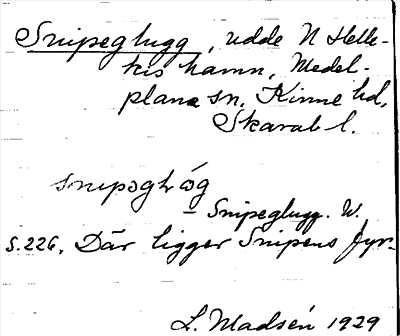 Snipeglugg, udde N Helle-
kis hamn, Medel-
plana sn, Kinne hd,
Skarab. l.
snipəgl&#x440;óg
– Snipeglugg. W.
S. 226. Där ligger Snipens fyr.
L. Madsén 1929